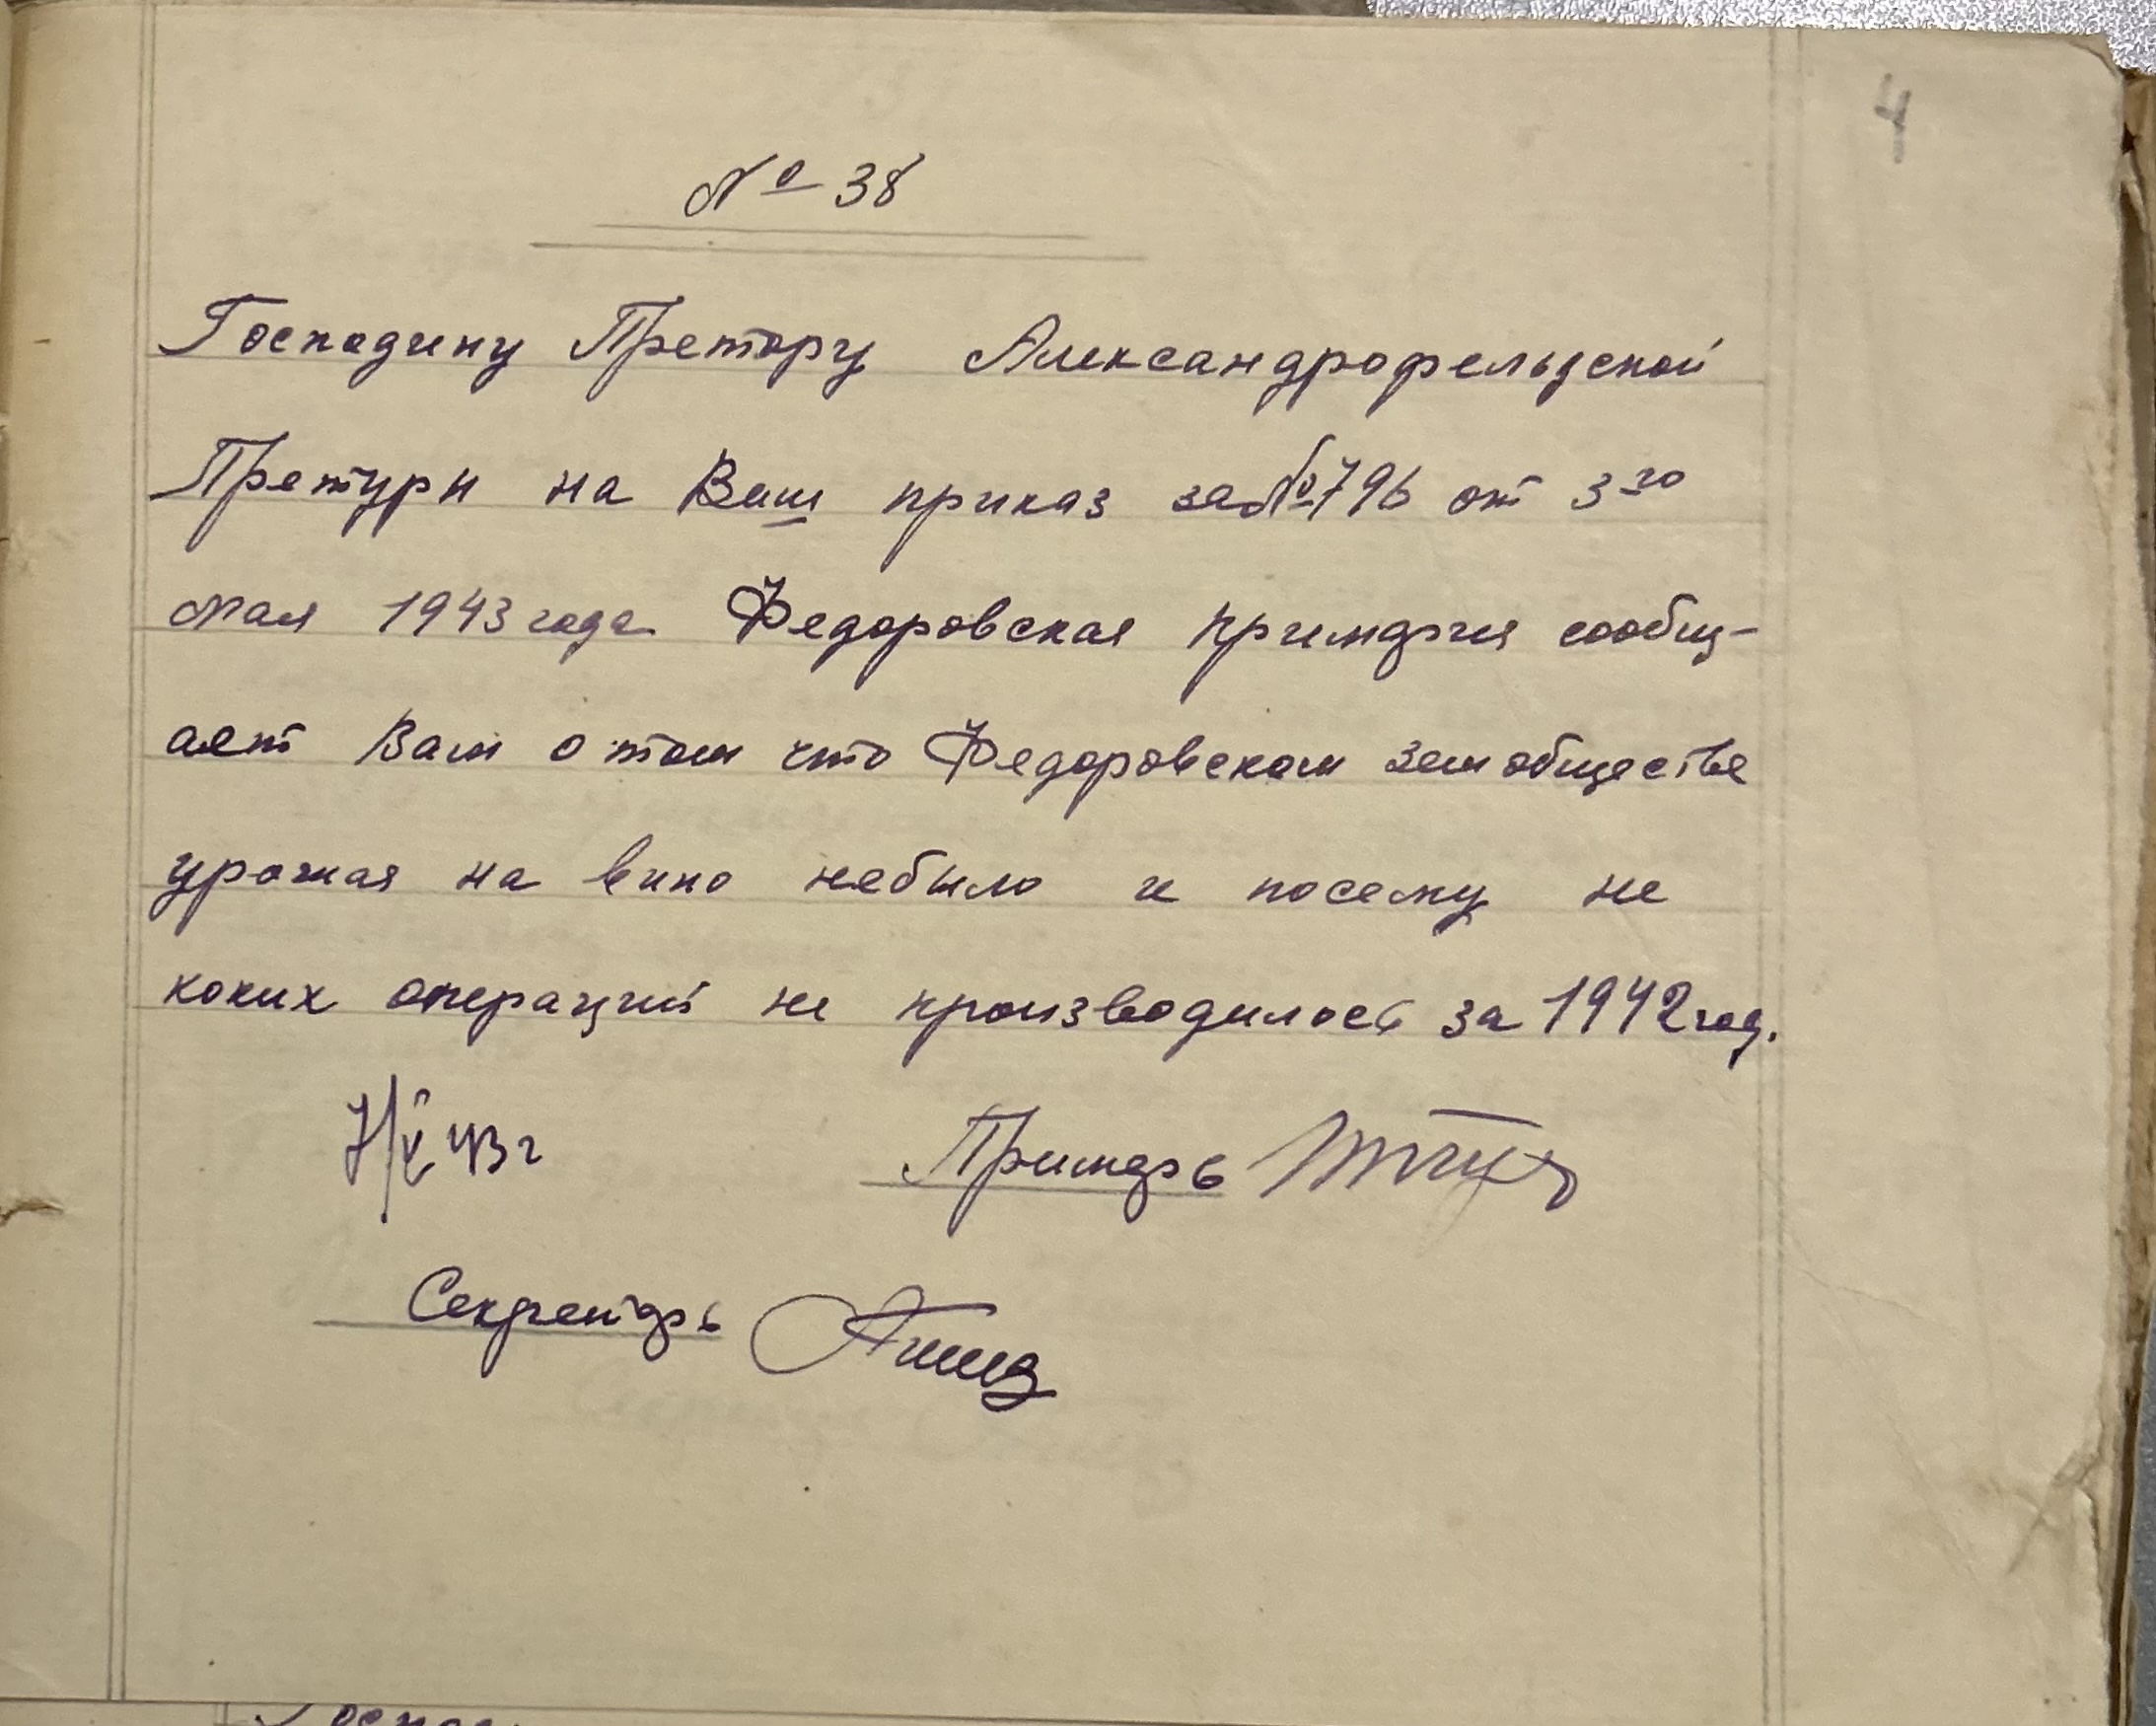 4
№ 38
Господину Претору Александрофельдской
Претури на Ваш приказ за №796 от 3го
мая 1943 года Федоровская примария сообщ-
ает Вам о том что Федоровском земобществе
урожая на вино небыло и посему не
коких операций не производилось за 1942 год.
7/V 43 г Примарь
Секретарь